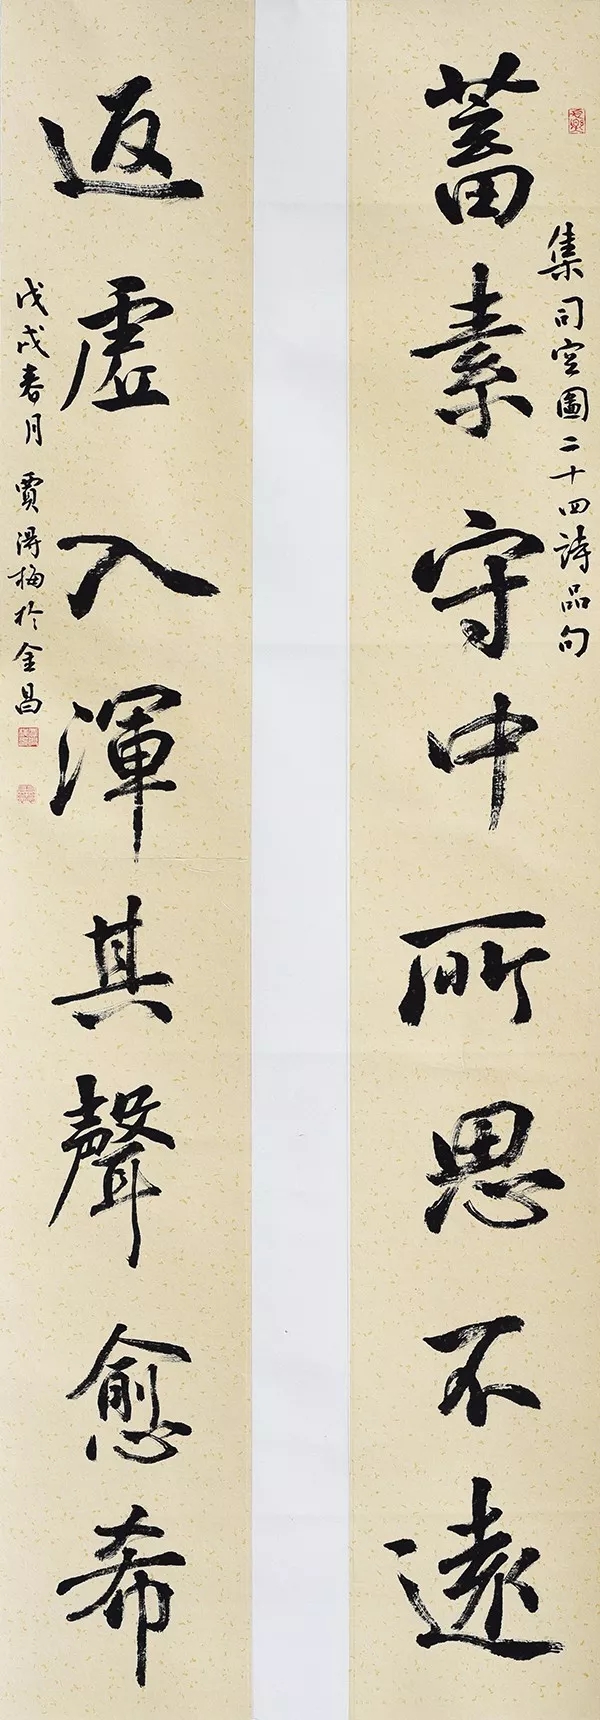 蓄素守中所思不遠
集司空圖二十四詩品句
返虛入渾其聲愈希
戊戌春月 賈得梅於金昌